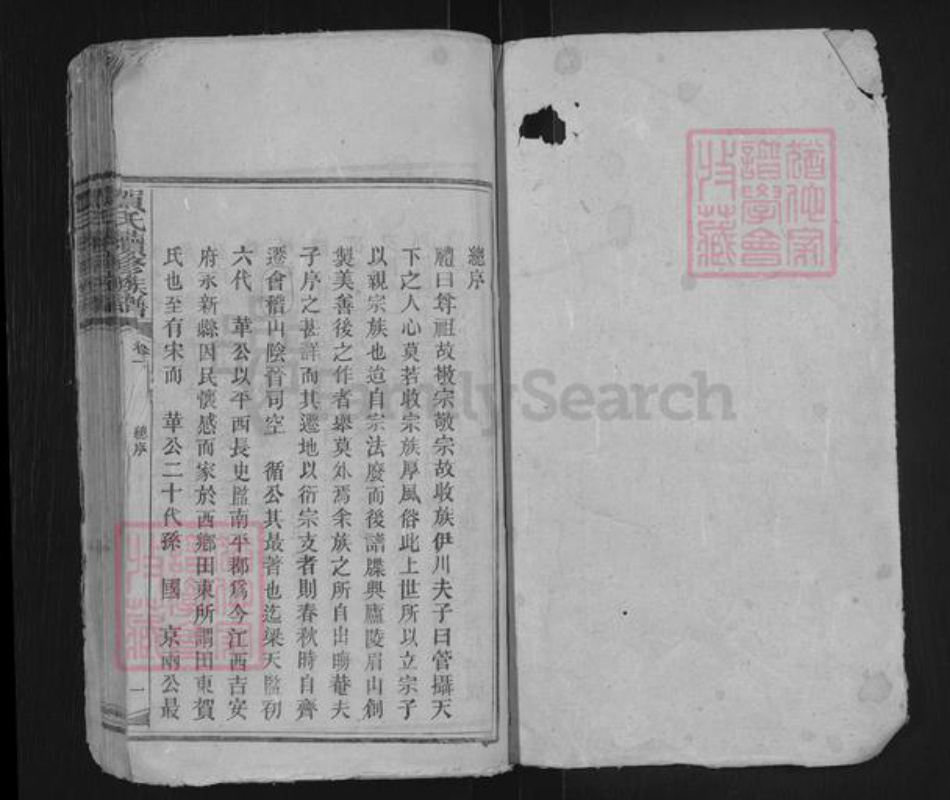 總序
禮曰尊祖故敬宗敬宗故收族伊川夫子曰管攝天
下之人心莫若收宗族厚風俗此上世所以立宗子
以親宗族也迨自宗法廢而後譜牒興廬陵眉山創
製美善後之作者舉莫外焉余族之所自出晦菴夫
子序之甚詳而其遷地以衍宗支者則春秋時自齊
遷會稽山陰晉司空 循公其最著也迄梁天監初
六代 華公以平西長史監南平郡爲今江西吉安
府永新縣因民懷感而家於西鄉田東所謂田東賀
氏也至有宋而 華公二十代孫 國 京兩公最
賀氏續修族譜
卷一
總序
一
FamilySearch
譜學會
收藏